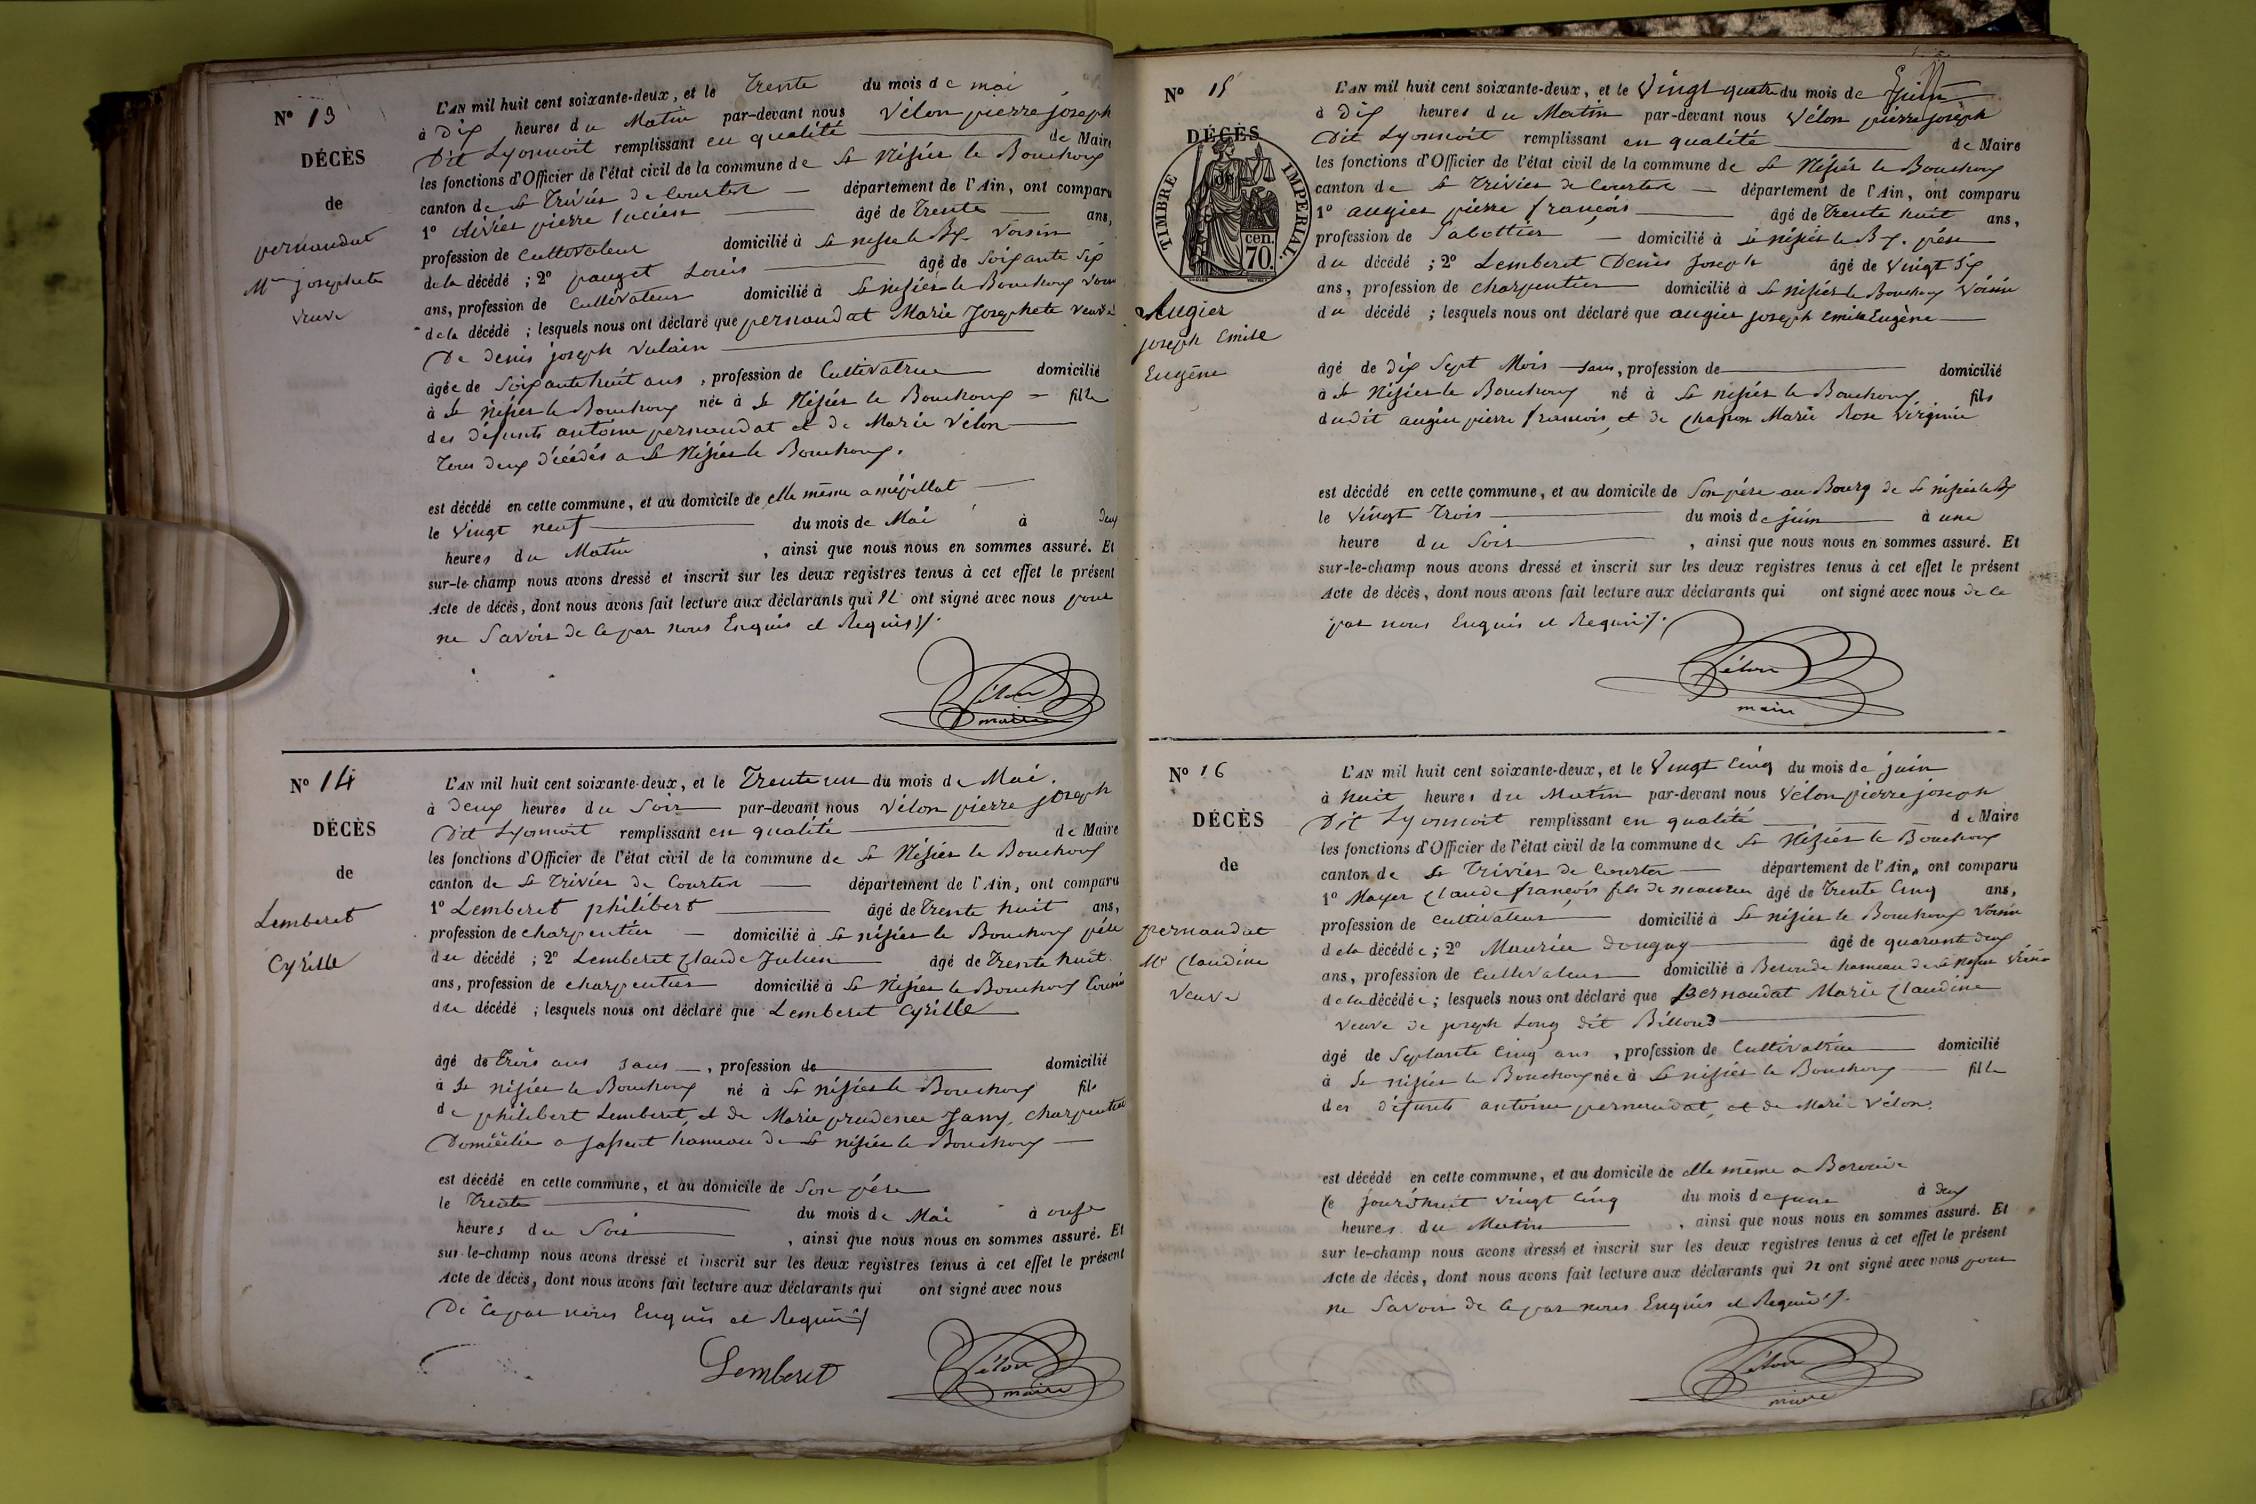 N° 13
DÉCÈS
de
pernaudat
Mie josephete
veuve
L'AN mil huit cent soixante-deux, et le Trente du mois de mai
à Dix heures du Matin par-devant nous Vélon pierre joseph
Dit Lyonnoit remplissant en qualité de Maire
les fonctions d'Officier de l'état civil de la commune de St Nisiér le Bouchoux
canton de St Triviér de Courtes département de l'Ain, ont comparu
1° pierre lucien âgé de Trente ans,
profession de Cultivateur domicilié à St nisié le Bx voisin
de la décédé ; 2° pauget Louis âgé de Soixante Six
ans, profession de Cultivateur domicilié à St nisiér le Bouchoux voisin
de la décédé ; lesquels nous ont déclaré que pernaudat Marie Josephete veuve
De denis joseph Vulain
âgée de Soixante huit ans , profession de Cultivatrice domicilié
à St nisiér le Bouchoux née à St Nisiér le Bouchoux fille
des défunts antoine pernaudat et de Marie Vélon
Tous deux décédés a St Nisiér le Bouchoux.
est décédé en cette commune, et au domicile de elle même a mépillat
le Vingt neuf du mois de Mai à deux
heures du Matin , ainsi que nous nous en sommes assuré. Et
sur-le-champ nous avons dressé et inscrit sur les deux registres tenus à cet effet le présent
Acte de décès, dont nous avons fait lecture aux déclarants qui n' ont signé avec nous pour
ne Savoir de ce par nous Enquis et Requis ./.
Vélon
maire
N° 14
DÉCÈS
de
Lemberet
Cyrille
L'AN mil huit cent soixante-deux, et le Trente un du mois de Mai.
à deux heures du Soir par-devant nous Vélon pierre joseph
Dit Lyonnoit remplissant en qualité de Maire
les fonctions d'Officier de l'état civil de la commune de St Nisiér le Bouchoux
canton de St Triviér de Courtes département de l'Ain, ont comparu
1° Lemberet philibert âgé de Trente huit ans,
profession de charpentier domicilié à St nisiér le Bouchoux pére
du décédé ; 2° Lemberet Claude Julien âgé de Trente huit
ans, profession de charpentier domicilié à St Nisiér le Bouchoux Cousin
du décédé ; lesquels nous ont déclaré que Lemberet Cyrille
âgé de Trois ans sans , profession de domicilié
à St nisiér le Bouchoux né à St nisiér le Bouchoux fils
de philibert Lemberet, et de Marie prudence Jany, charpentier
Domicilié a hameau de St nisiér le Bouchoux
est décédé en cette commune, et au domicile de Son pére
le Trente du mois de Mai à onze
heures du Soir , ainsi que nous nous en sommes assuré. Et
sur-le-champ nous avons dressé et inscrit sur les deux registres tenus à cet effet le présent
Acte de décès, dont nous avons fait lecture aux déclarants qui ont signé avec nous
De ce par nous Enquis et Requis ./.
Lemberet
Vélon
maire
N° 15
DÉCÈS
de
TIMBRE IMPERIAL.
cen.
70.
Augier
joseph Emile
Eugène
L'AN mil huit cent soixante-deux, et le Vingt quatre du mois de Juin
à Dix heures du Matin par-devant nous Vélon pierre joseph
Dit Lyonnoit remplissant en qualité de Maire
les fonctions d'Officier de l'état civil de la commune de St Nisiér le Bouchoux
canton de St Triviér de Courtes département de l'Ain, ont comparu
1° augier pierre françois âgé de Trente huit ans,
profession de Sabottier domicilié à St nisiér le Bx. pére
du décédé ; 2° Lemberet Denis Joseph âgé de Vingt Six
ans, profession de charpentier domicilié à St nisiér le Bouchoux Voisin
du décédé ; lesquels nous ont déclaré que augier joseph Emile Eugène
âgé de dix Sept Mois sans, profession de domicilié
à St Nisiér le Bouchoux né à St nisiér le Bouchoux fils
dudit augier pierre françois, et de chapon Marie Rose Virginie
est décédé en cette commune, et au domicile de Son pére au Bourg de St nisiér le Bx
le Vingt Trois du mois de juin à une
heure du Soir , ainsi que nous nous en sommes assuré. Et
sur-le-champ nous avons dressé et inscrit sur les deux registres tenus à cet effet le présent
Acte de décès, dont nous avons fait lecture aux déclarants qui ont signé avec nous de ce
par nous Enquis et Requis ./.
Vélon
maire
N° 16
DÉCÈS
de
pernaudat
Mie Claudine
Veuve
L'AN mil huit cent soixante-deux, et le Vingt Cinq du mois de juin
à huit heures du Matin par-devant nous Vélon pierre joseph
Dit Lyonnoit remplissant en qualité de Maire
les fonctions d'Officier de l'état civil de la commune de St Nisiér le Bouchoux
canton de St Triviér de Courtes département de l'Ain, ont comparu
1° Mayer Claude françois fils de âgé de Trente Cinq ans,
profession de Cultivateur domicilié à St nisiér le Bouchoux Voisin
de la décédée ; 2° Maurice donguy âgé de quarant deux
ans, profession de Cultivateur domicilié à hameau de St Voisin
de la décédée ; lesquels nous ont déclaré que pernaudat Marie Claudine
veuve de joseph Long dit Billoud
âgé de Septante Cinq ans , profession de Cultivatrice domicilié
à St nisiér le Bouchoux née à St nisiér le Bouchoux fille
des défunts antoine pernaudat, et de Marie Vélon.
est décédé en cette commune, et au domicile de elle même a
le jourd'huit vingt Cinq du mois de juin à deux
heures du Matin , ainsi que nous nous en sommes assuré. Et
sur le-champ nous avons dressé et inscrit sur les deux registres tenus à cet effet le présent
Acte de décès, dont nous avons fait lecture aux déclarants qui n' ont signé avec nous pour
ne Savoir de ce par nous Enquis et Requis ./.
Vélon
maire